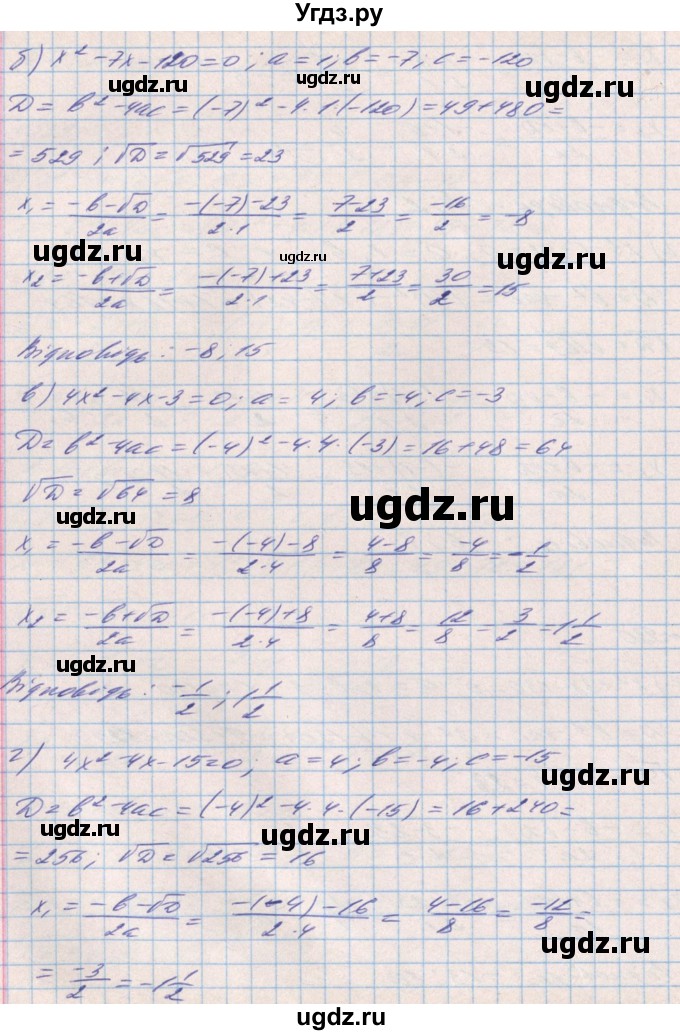 Угдз.ру
б) x² - 7x - 120 = 0 ; a = 1; b = -7; c = -120
D = b² - 4ac = (-7)² - 4·1(-120) = 49 + 480 =
= 529 ; √D = √529 = 23
x₁ = (-b-√D)/2a = (-(-7)-23)/(2·1) = (7-23)/2 = -16/2 = -8
ugdz.ru
ugdz.ru
ugdz.ru
x₂ = (-b+√D)/2a = (-(-7)+23)/(2·1) = (7+23)/2 = 30/2 = 15
Відповідь: -8; 15
в) 4x² - 4x - 3 = 0; a = 4; b = -4; c = -3
D = b² - 4ac = (-4)² - 4·4·(-3) = 16 + 48 = 64
√D = √64 = 8
ugdz.ru
ugdz.ru
x₁ = (-b-√D)/2a = (-(-4)-8)/(2·4) = (4-8)/8 = -4/8 = -1/2
x₂ = (-b+√D)/2a = (-(-4)+8)/(2·4) = (4+8)/8 = 12/8 = 3/2 = 1 1/2
ugdz.ru
Відповідь: -1/2; 1 1/2
г) 4x² - 4x - 15 = 0; a = 4; b = -4; c = -15
ugdz.ru
D = b² - 4ac = (-4)² - 4·4·(-15) = 16 + 240 =
ugdz.ru
ugdz.ru
= 256; √D = √256 = 16
x₁ = (-b-√D)/2a = (-(-4)-16)/(2·4) = (4-16)/8 = -12/8 =
ugdz.ru
= -3/2 = -1 1/2
ugdz.ru